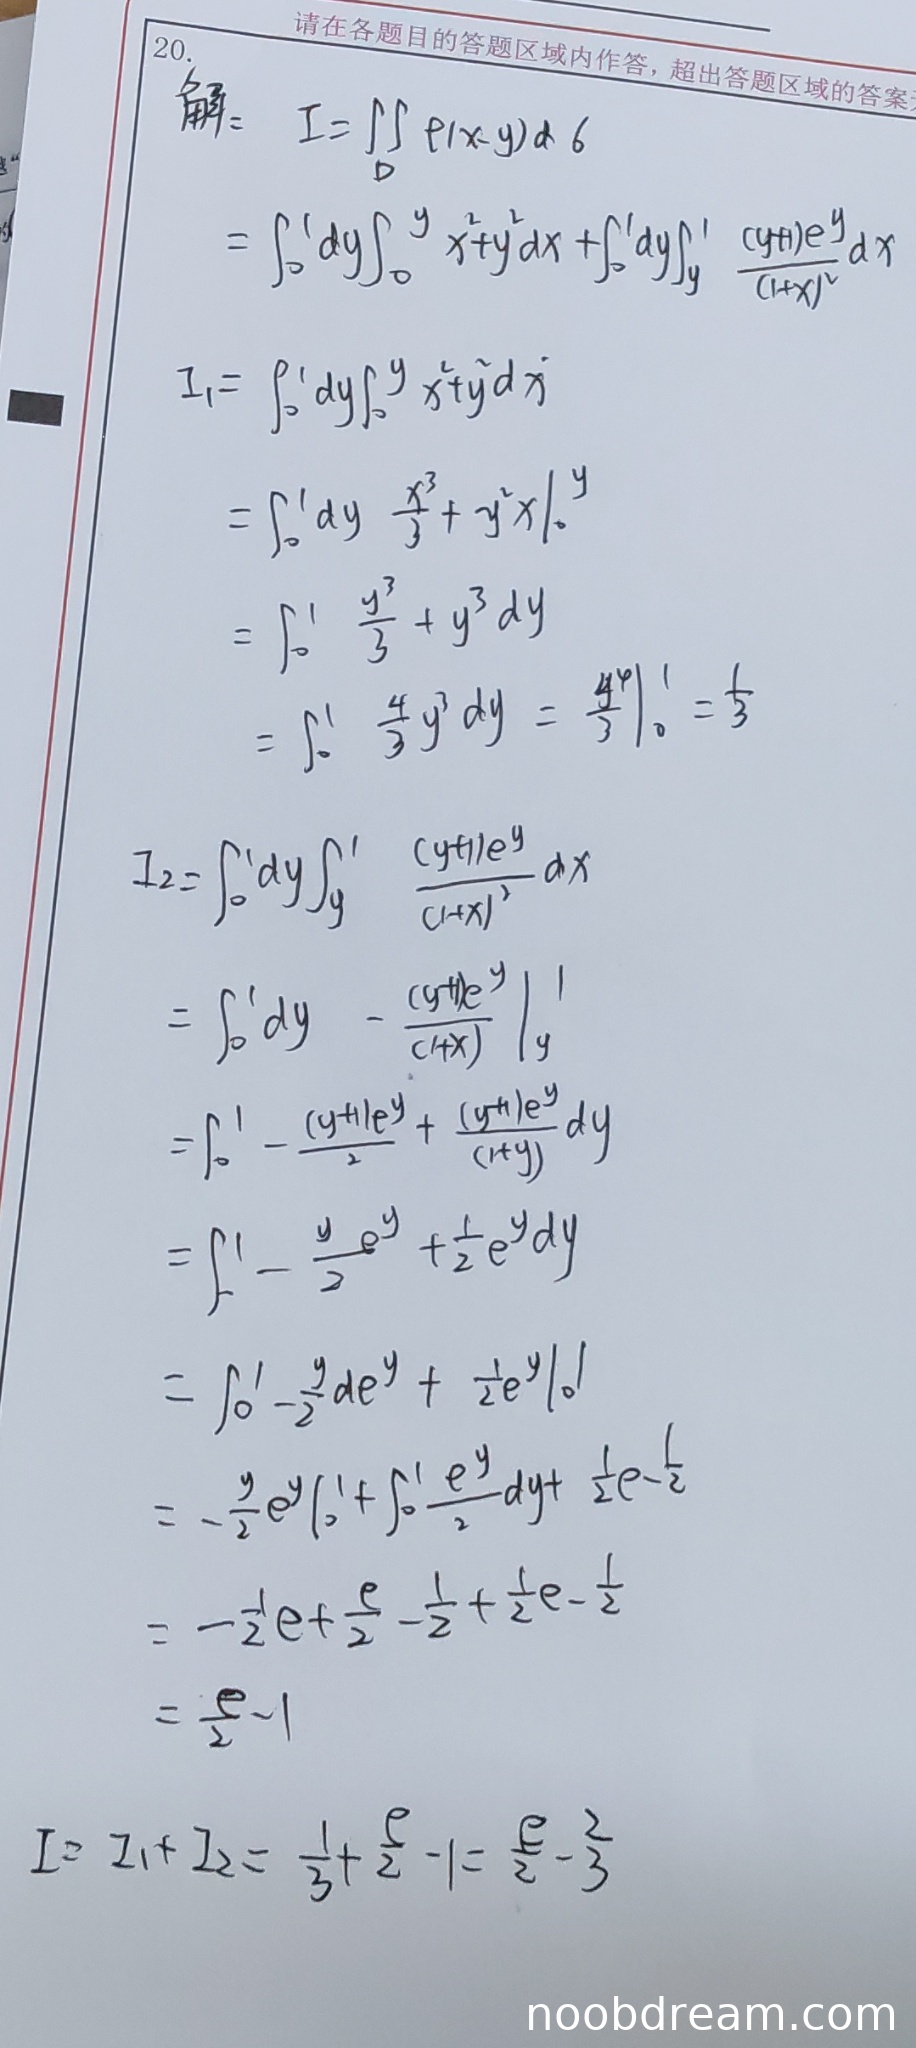 请在各题目的答题区域内作答，超出答题区域的答案
20.
解: I = ∬_D ρ(x-y)dσ
= ∫_0^1 dy ∫_0^y x²+y² dx + ∫_0^1 dy ∫_y^1 (y+1)e^y/(1+x)² dx
I₁ = ∫_0^1 dy ∫_0^y x²+y² dx
= ∫_0^1 dy x³/3 + y²x |_0^y
= ∫_0^1 y³/3 + y³ dy
= ∫_0^1 4/3 y³ dy = y⁴/3 |_0^1 = 1/3
I₂ = ∫_0^1 dy ∫_y^1 (y+1)e^y/(1+x)² dx
= ∫_0^1 dy - (y+1)e^y/(1+x) |_y^1
= ∫_0^1 - (y+1)e^y/2 + (y+1)e^y/(1+y) dy
= ∫^1 - y/2 e^y + 1/2 e^y dy
= ∫_0^1 - y/2 de^y + 1/2 e^y |_0^1
= - y/2 e^y |_0^1 + ∫_0^1 e^y/2 dy + 1/2 e - 1/2
= - 1/2 e + e/2 - 1/2 + 1/2 e - 1/2
= e/2 - 1
I = I₁ + I₂ = 1/3 + e/2 - 1 = e/2 - 2/3
noobdream.com